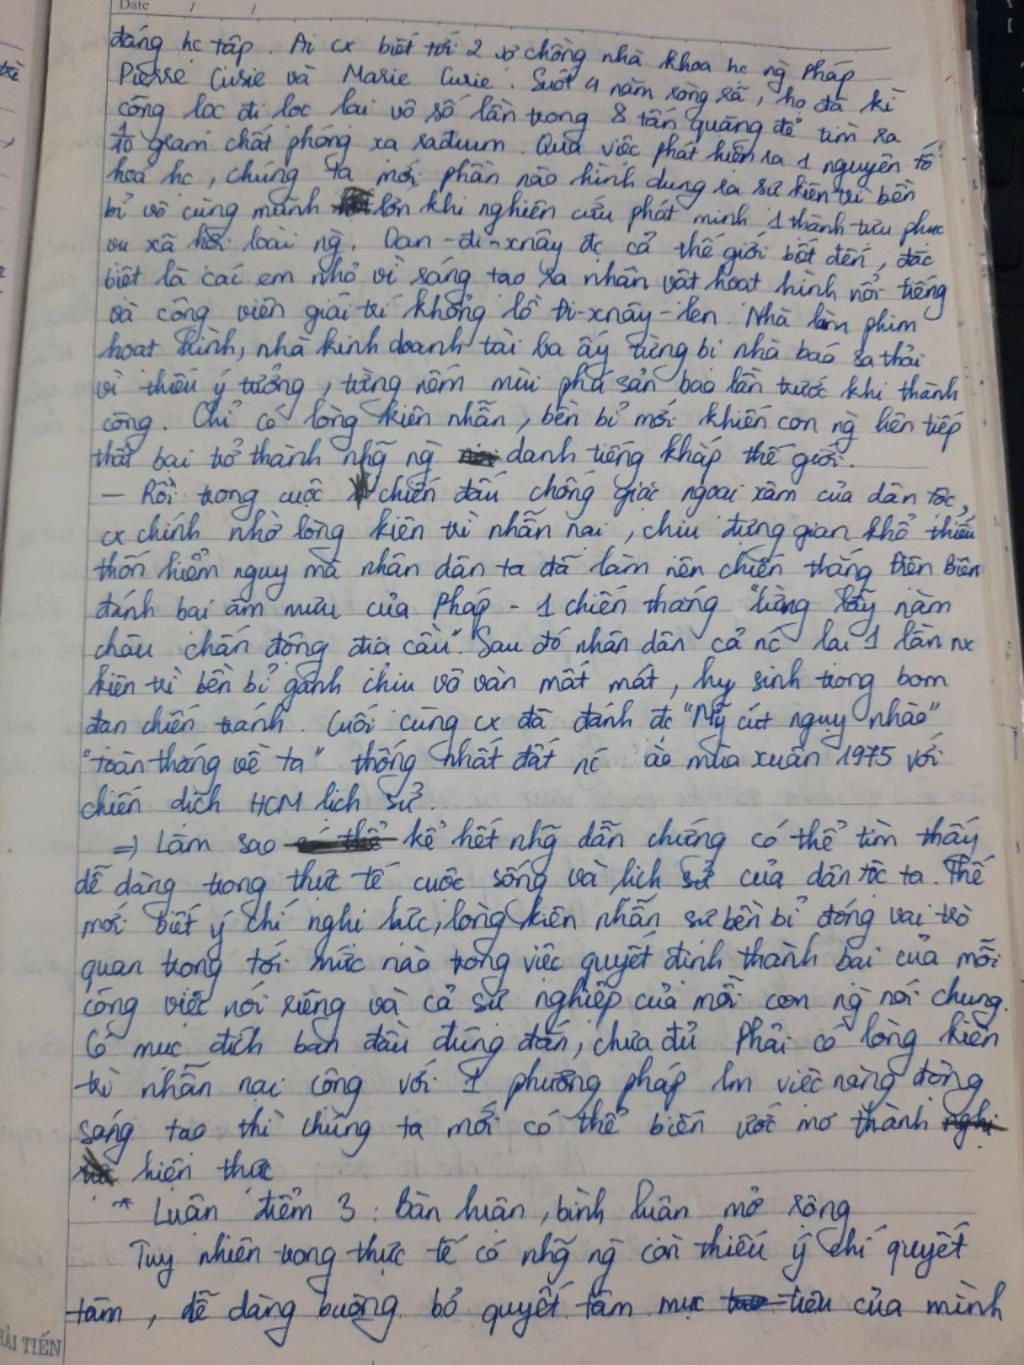 Date / /
đáng hc tập. Ai cx biết tới 2 vợ chồng nhà khoa hc ng Pháp
Pierre Curie và Marie Curie. Suốt 4 năm ròng rã, họ đã kì
công lọc đi lọc lại vô số lần trong 8 tấn quặng để tìm ra
1/10 gram chất phóng xạ radium. Qua việc phát hiện ra 1 nguyên tố
hoá hc, chúng ta mới phần nào hình dung ra sự kiên trì bền
bỉ vô cùng mãnh lớn khi nghiên cứu phát minh 1 thành tựu phục
vụ xã hội loài ng. Oan-đi-xnây đc cả thế giới biết đến, đặc
biệt là các em nhỏ vì sáng tạo ra nhân vật hoạt hình nổi tiếng
và công viên giải trí khổng lồ Đi-xnây-len. Nhà làm phim
hoạt hình, nhà kinh doanh tài ba ấy từng bị nhà báo sa thải
vì thiếu ý tưởng, từng nếm mùi phá sản bao lần trước khi thành
công. Chỉ có lòng kiên nhẫn, bền bỉ mới khiến con ng liên tiếp
thất bại trở thành nhg ng danh tiếng khắp thế giới.
– Rồi trong cuộc chiến đấu chống giặc ngoại xâm của dân tộc,
cx chính nhờ lòng kiên trì nhẫn nại, chịu đựng gian khổ thiếu
thốn hiểm nguy mà nhân dân ta đã làm nên chiến thắng Điện Biên
đánh bại âm mưu của Pháp - 1 chiến thắng "lừng lẫy năm
châu chấn động địa cầu". Sau đó nhân dân cả nc lại 1 lần nx
kiên trì bền bỉ gánh chịu vô vàn mất mát, hy sinh trong bom
đạn chiến tranh. Cuối cùng cx đã đánh đc "Mỹ cút ngụy nhào"
"toàn thắng về ta" thống nhất đất nc vào mùa xuân 1975 với
chiến dịch HCM lịch sử.
⇒ Làm sao kể hết nhg dẫn chứng có thể tìm thấy
dễ dàng trong thực tế cuộc sống và lịch sử của dân tộc ta. Thế
mới biết ý chí nghị lực, lòng kiên nhẫn sự bền bỉ đóng vai trò
quan trọng tới mức nào trong việc quyết định thành bại của mỗi
công việc nói riêng và cả sự nghiệp của mỗi con ng nói chung.
Có mục đích ban đầu đúng đắn, chưa đủ Phải có lòng kiên
trì nhẫn nại cộng với 1 phương pháp lm việc năng động
sáng tạo thì chúng ta mới có thể biến ước mơ thành
hiện thực
* Luận điểm 3: Bàn luận, bình luận mở rộng
Tuy nhiên trong thực tế có nhg ng còn thiếu ý chí quyết
tâm, dễ dàng buông bỏ quyết tâm mục tiêu của mình
HẢI TIẾN